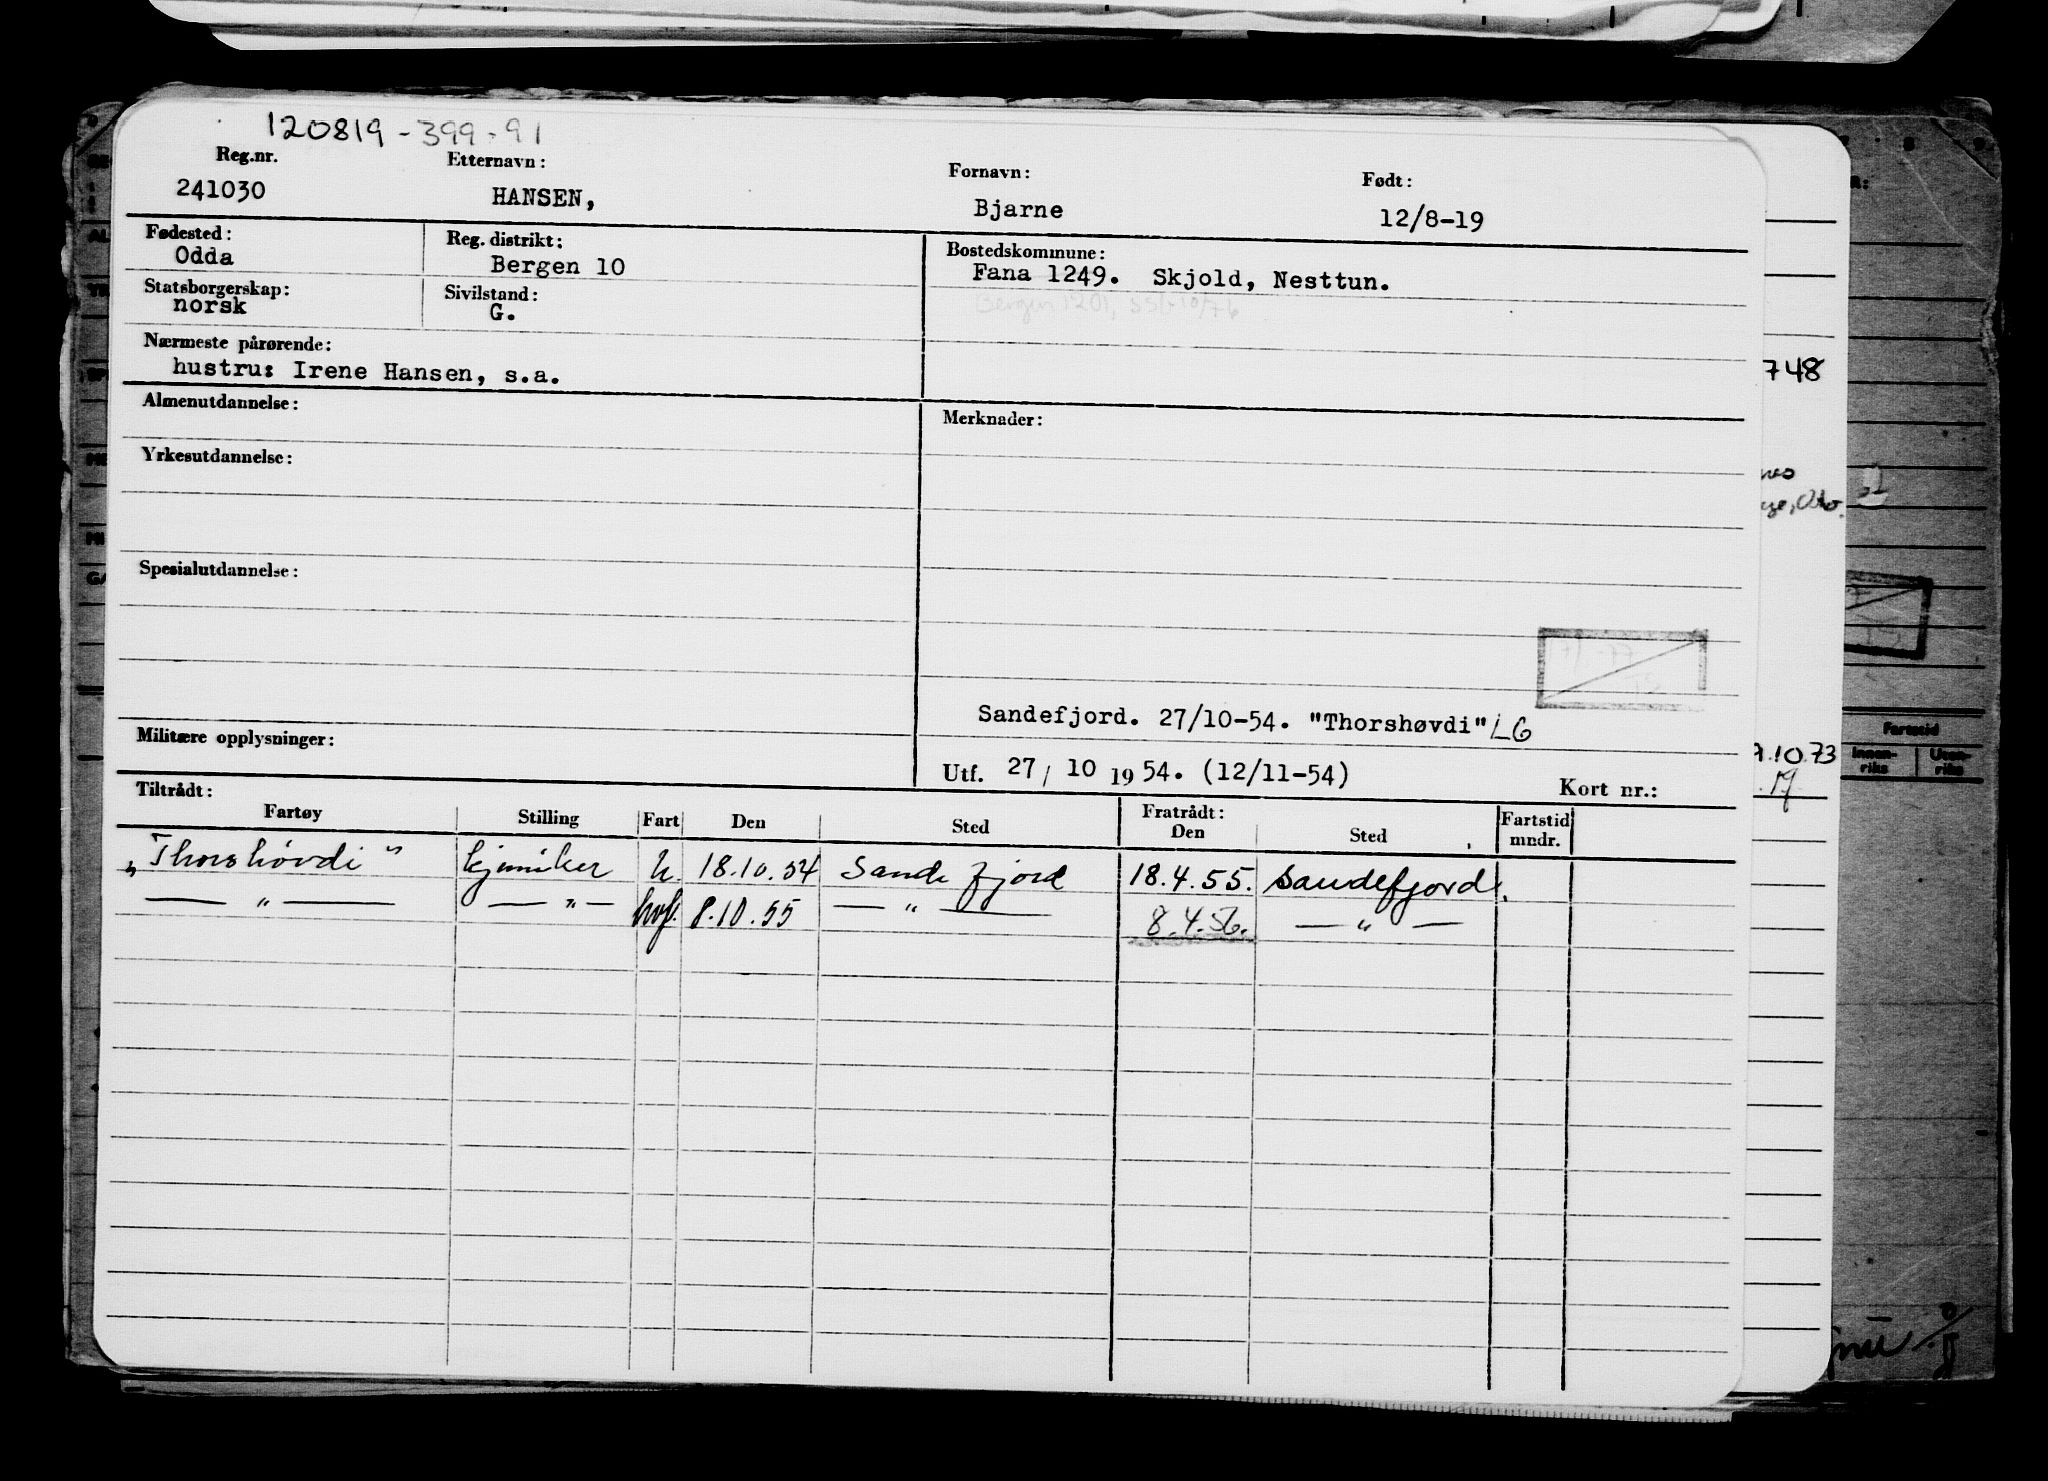 120819-399-91
Reg.nr. Etternavn: Fornavn: Født:
241030 HANSEN, Bjarne 12/8-19
Fødested: Reg. distrikt: Bostedskommune:
Odda Bergen 10 Fana 1249. Skjold, Nesttun.
Statsborgerskap: Sivilstand:
norsk G. Bergen 1201,
Nærmeste pårørende:
hustru: Irene Hansen, s.a.
748
Almenutdannelse: Merknader:
Yrkesutdannelse:
Spesialutdannelse:
Sandefjord. 27/10-54. "Thorshøvdi" LG
Militære opplysninger:
Utf. 27/10 1954. (12/11-54) Kort nr.:
10.73
Fartstid
Innen-riks Uten-riks
Tiltrådt: Fratrådt:
Fartøy Stilling Fart Den Sted Den Sted Fartstid mndr.
"Thorshövdi" kjemiker h. 18.10.54 Sandefjord 18.4.55. Sandefjord.
— " — — " — hvf. 8.10.55 — " — 8.4.56. — " —